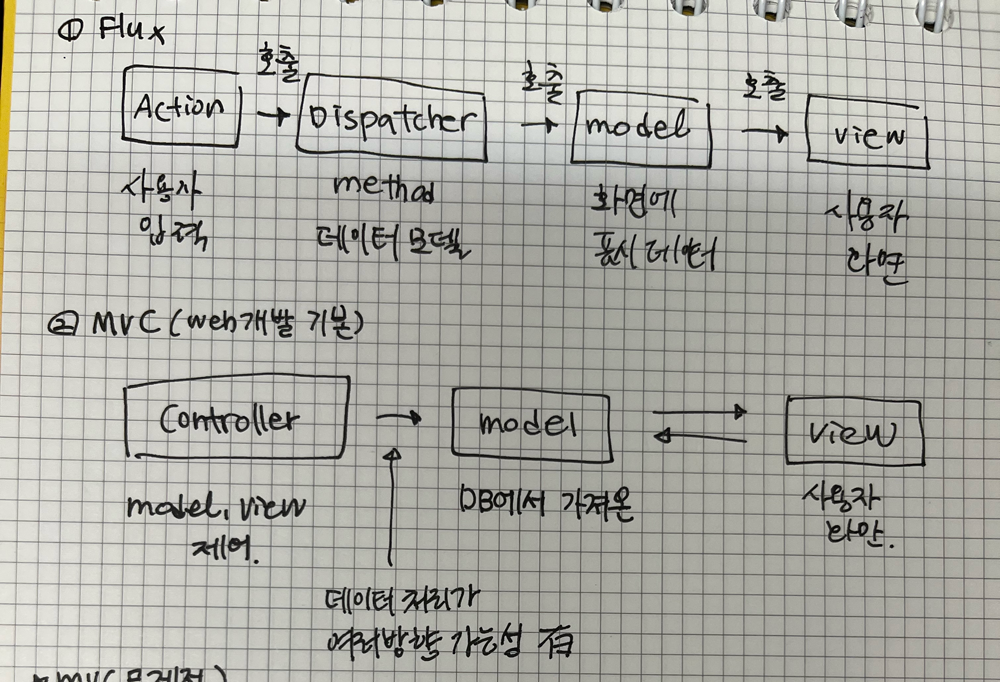 ① Flux
호출 호출 호출
Action → Dispatcher → model → view
사용자 method 화면에 사용자
입력 데이터 모델 표시 데이터 화면
② MVC (web개발 기본)
Controller → model ⇄ view
model, view DB에서 가져온 사용자
제어. 화면.
데이터 처리가
여러방향 가능성 有
* MVC 문제점)